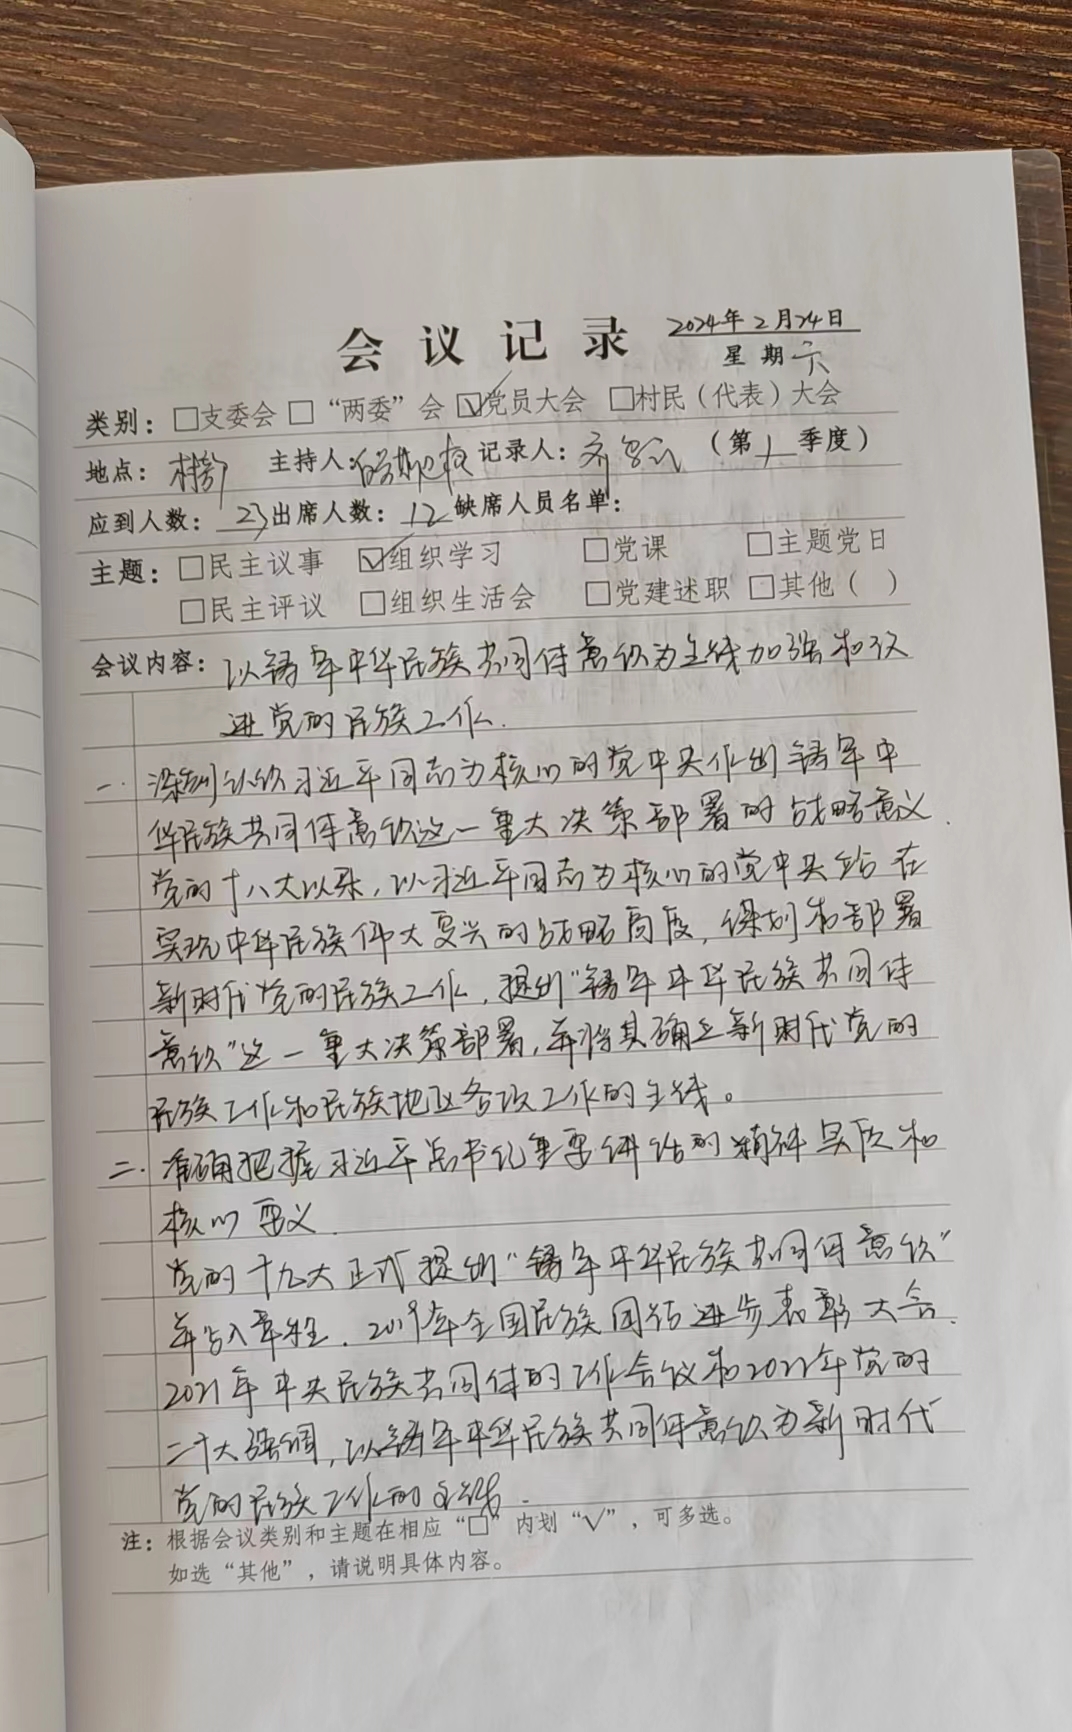 会议记录 2024年2月24日
星期六
类别：□支委会 □“两委”会 ☑党员大会 □村民（代表）大会
地点：村部 主持人： 记录人： （第1季度）
应到人数：23 出席人数：12 缺席人员名单：
主题：□民主议事 ☑组织学习 □党课 □主题党日
□民主评议 □组织生活会 □党建述职 □其他（ ）
会议内容：以铸牢中华民族共同体意识为主线加强和改
进党的民族工作.
一.深刻认识习近平同志为核心的党中央作出铸牢中
华民族共同体意识这一重大决策部署的战略意义.
党的十八大以来，以习近平同志为核心的党中央站在
实现中华民族伟大复兴的战略高度，谋划和部署
新时代党的民族工作，提出“铸牢中华民族共同体
意识”这一重大决策部署，并将其确立新时代党的
民族工作和民族地区各项工作的主线。
二.准确把握习近平总书记重要讲话的精神实质和
核心要义.
党的十九大正式提出“铸牢中华民族共同体意识”
并写入章程.2019年全国民族团结进步表彰大会.
2021年中央民族共同体的工作会议和2022年党的
二十大强调，以铸牢中华民族共同体意识为新时代
党的民族工作的主线.
注：根据会议类别和主题在相应“□”内划“√”，可多选。
如选“其他”，请说明具体内容。